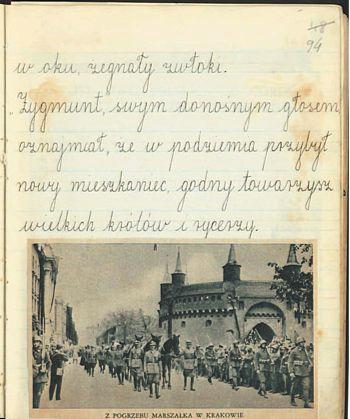 48
94
w oku, żegnały zwłoki.
Zygmunt, swym donośnym głosem
oznajmiał, że w podziemia przybył
nowy mieszkaniec, godny towarzysz
wielkich królów i rycerzy.
Z POGRZEBU MARSZAŁKA W KRAKOWIE